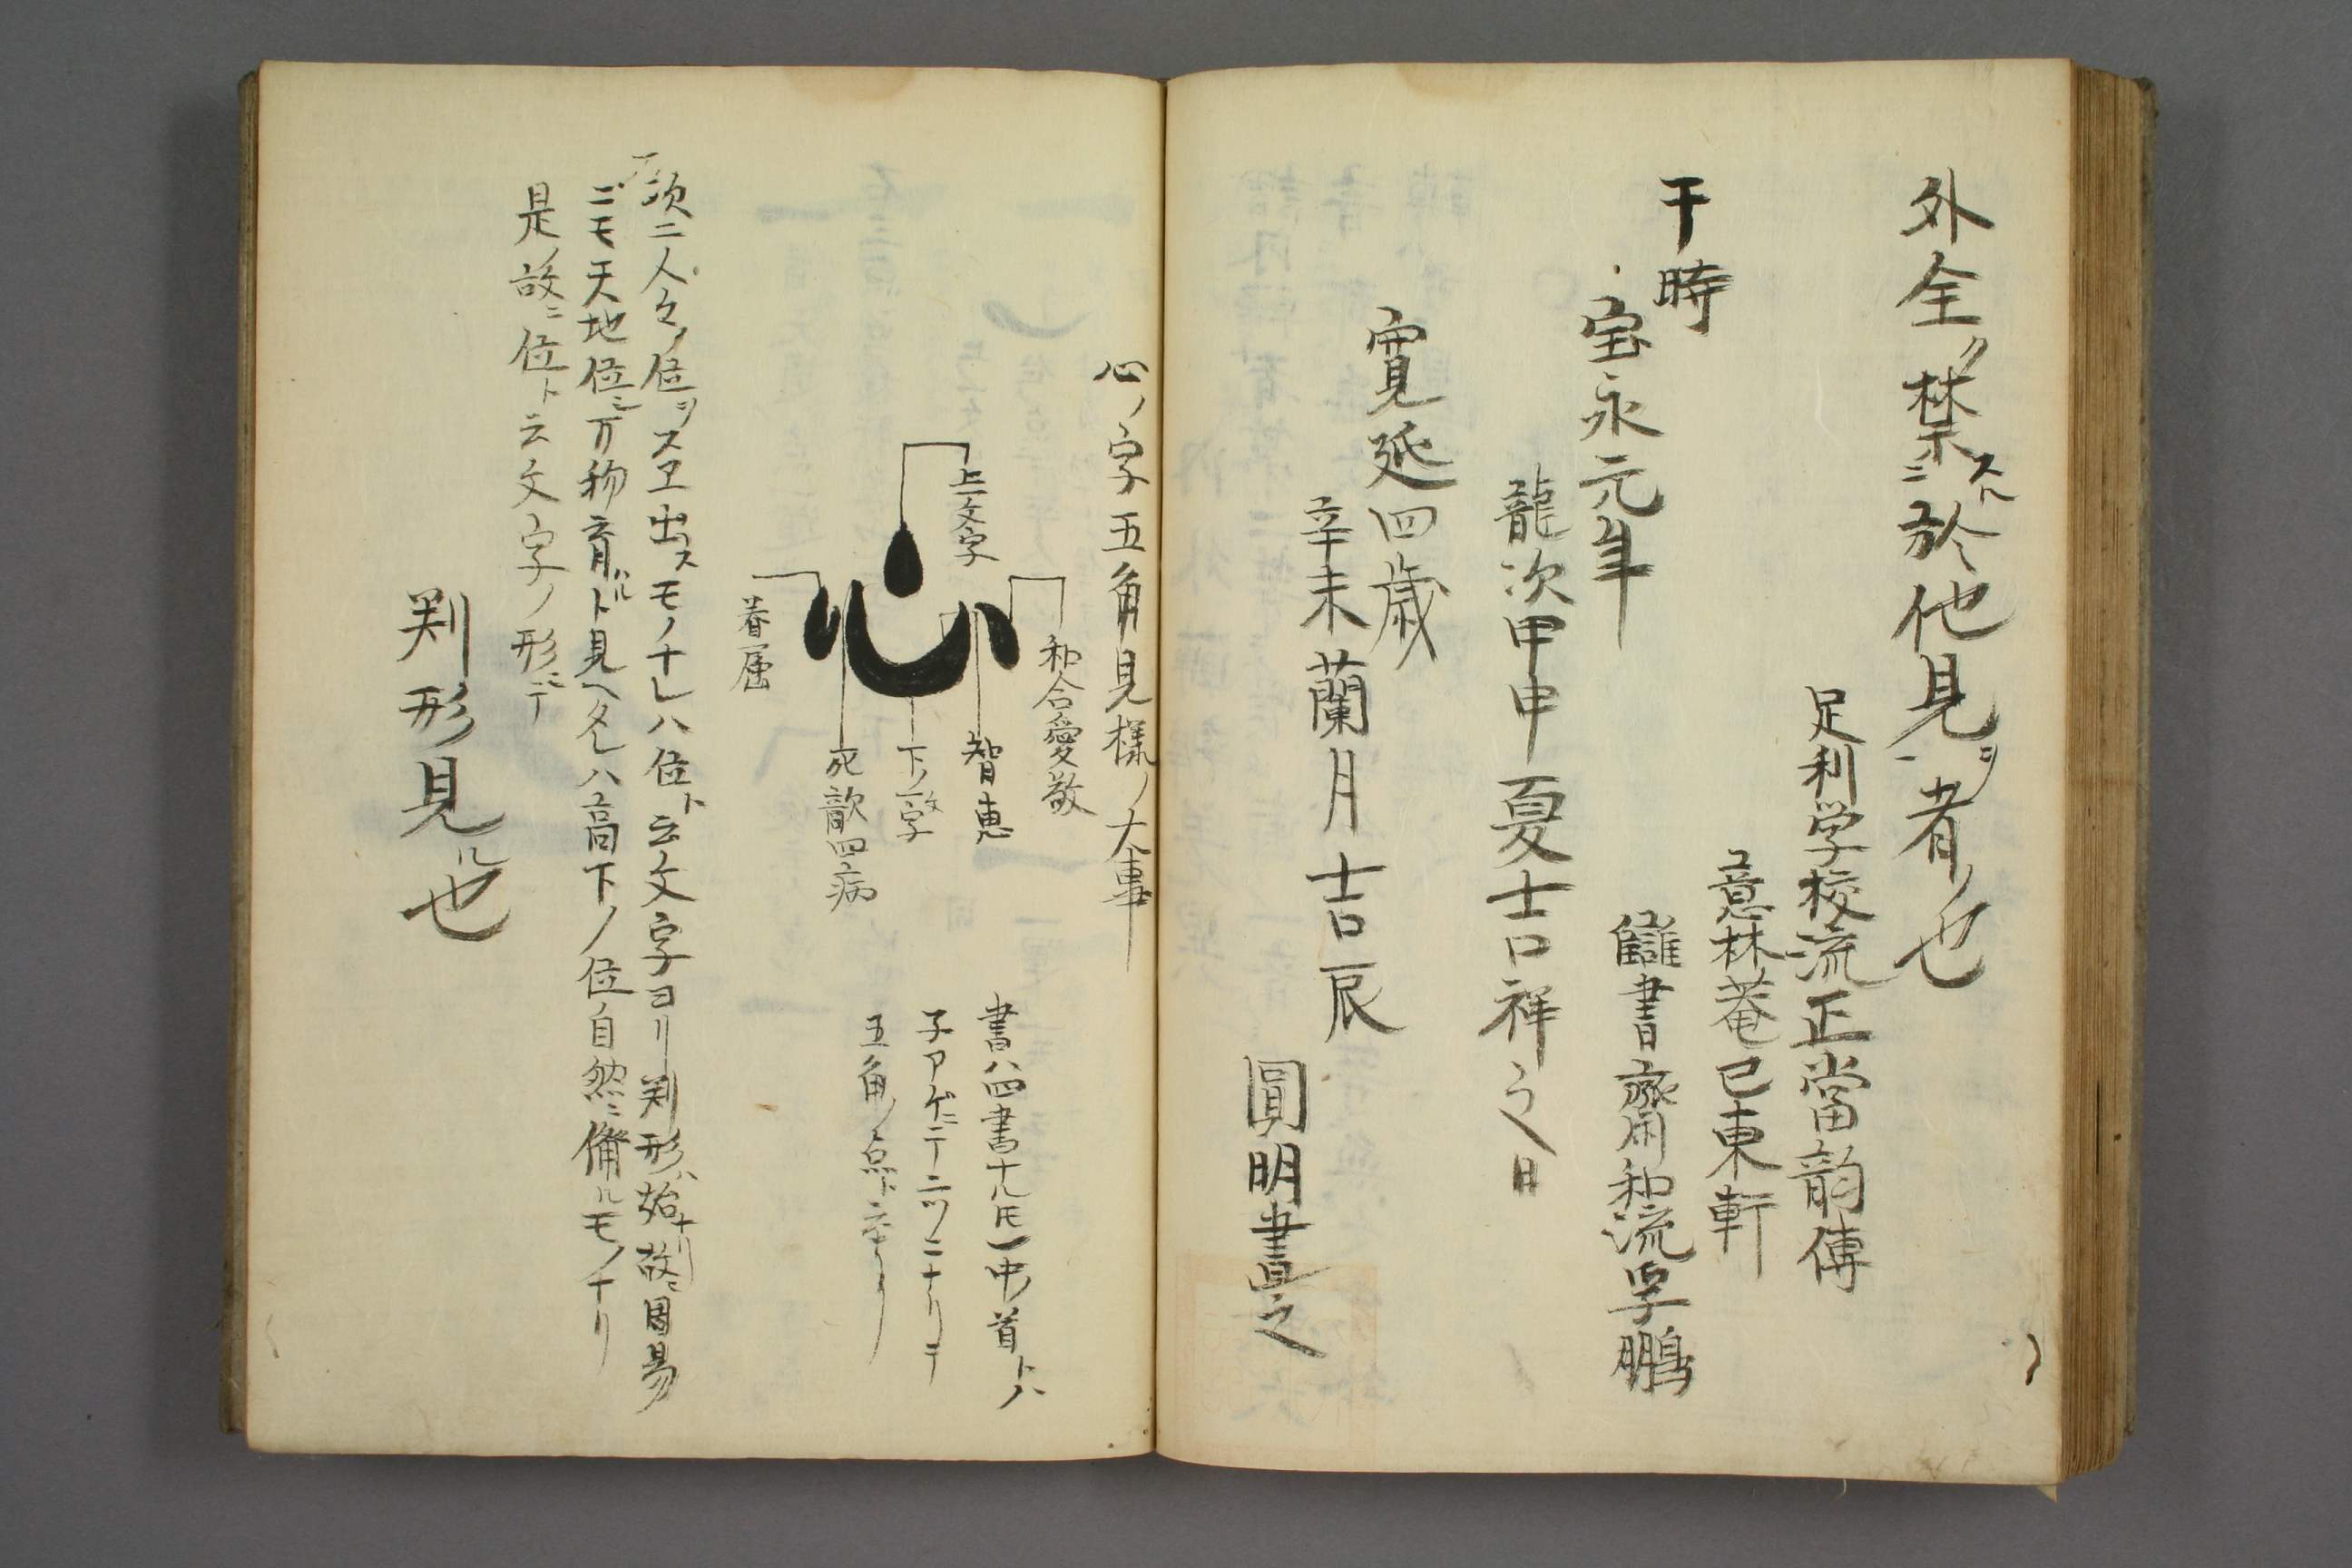 外全ク禁スルニ於他見ヲ一者ノ也
足利学校流正當韵傳
意林菴已東軒
讎書齋用和流孚鵬
于時
宝永元年
龍次甲申夏吉祥之日
寛延四歳
辛未蘭月吉辰
圓明書之
心ノ字五角見様ノ大事
和合愛敬
上文字
智恵
下ノ文字
死歆四病
眷属
書ハ四書ナル𪜈一中ノ首トハ
子アゲニテニツニナリテ
五角ノ点ト
次ニ人々ノ位ヲスヱ出スモノナレハ位ト云文字ヨリ判形ハ始ナリ故ニ周易
ニモ天地位シテ万物育ハルト見ヘタレハ高下ノ位自然ニ備ルモノナリ
是ノ故ニ位ト云文字ノ形ニテ
判形見ル也